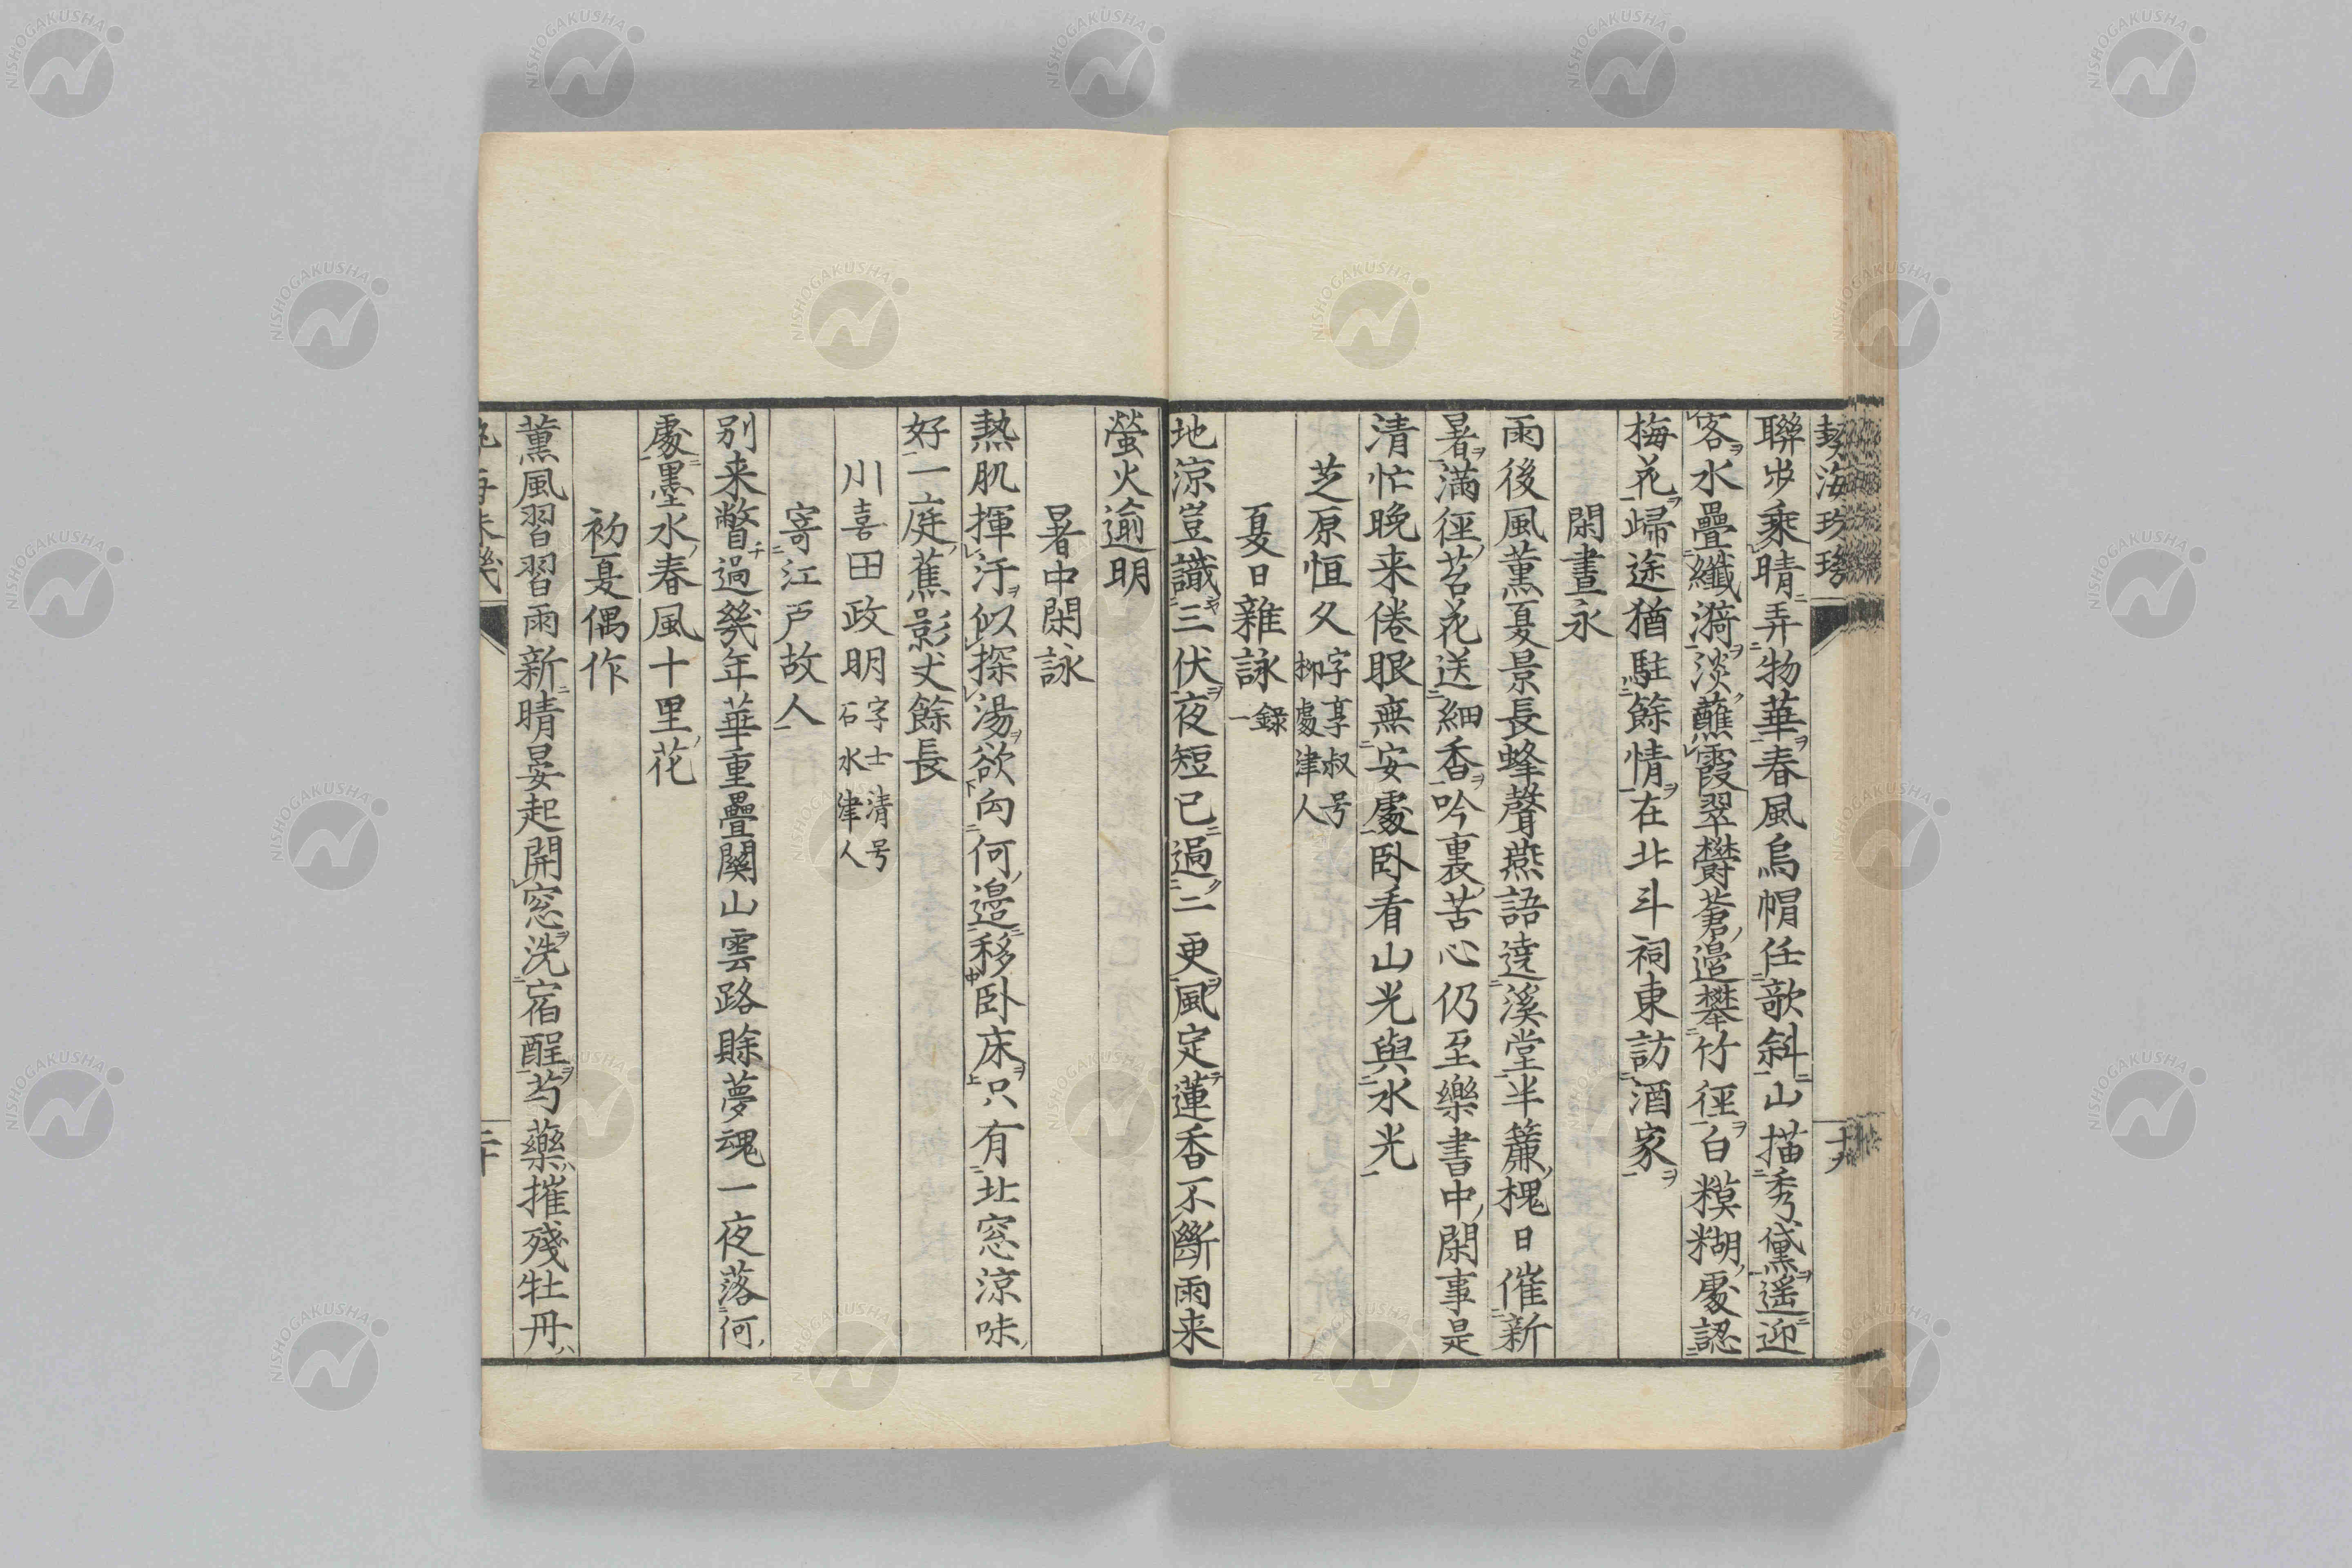 聯步乘晴弄物華春風烏帽任欹斜山描秀黛遥迎
客水疊纖漪淡蘸霞翠欝蒼邉攀竹徑白糢糊處認
梅花歸途猶駐餘情在北斗祠東訪酒家
閑晝永
雨後風薫夏景長蜂聲燕語遶溪堂半簾槐日催新
暑滿徑茗花送細香吟裏苦心仍至樂書中閑事是
清忙晩来倦眼無安處卧看山光與水光
芝原恒久 字享叔号柳處津人
夏日雜詠 録一
地凉豈識三伏夜短已過二更風定蓮香不斷雨来
螢火逾明
暑中閑詠
熱肌揮汗似探湯欲向何邉移卧床只有北窓凉味
好一庭蕉影丈餘長
川喜田政明 字士清号石水津人
寄江戸故人
別来瞥過幾年華重疊關山雲路賖夢魂一夜落何
處墨水春風十里花
初夏偶作
薫風習習雨新晴晏起開窓洗宿酲芍藥摧殘牡丹
二十
NISHOGAKUSHA